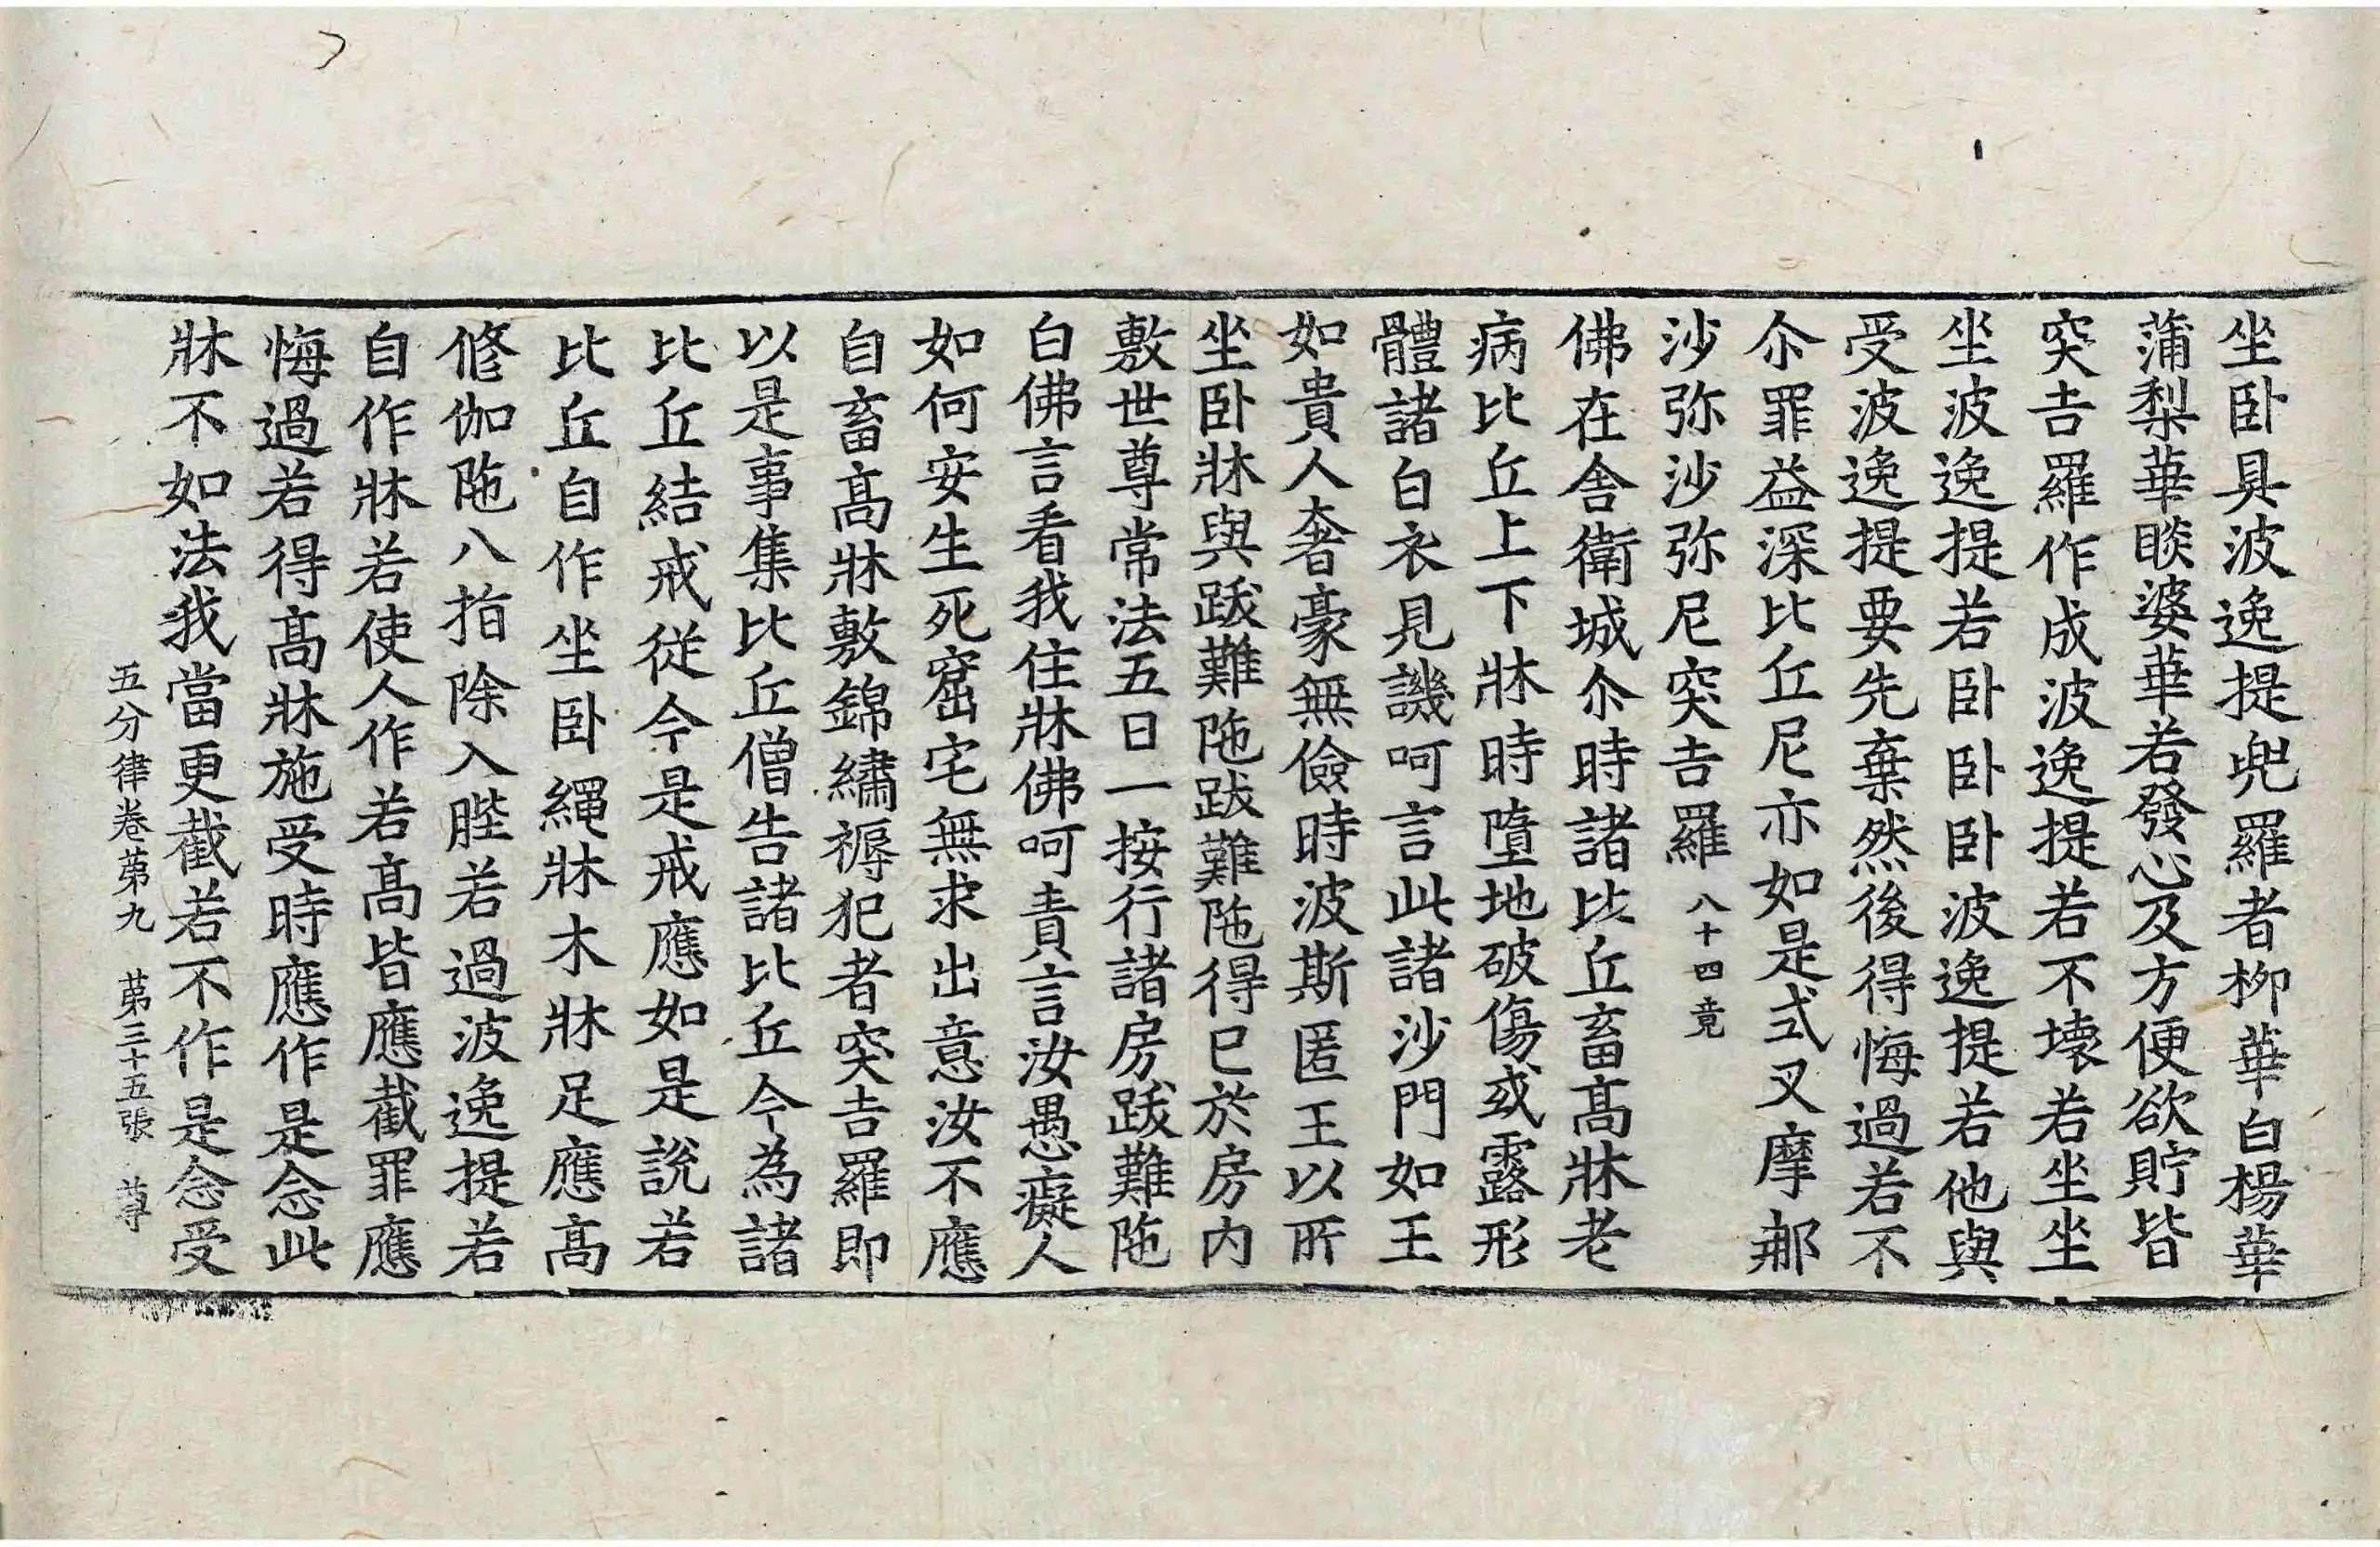 坐卧具波逸提兜羅者柳華白楊華
蒲梨華睒婆華若發心及方便欲貯皆
突吉羅作成波逸提若不壊若坐坐
坐波逸提若卧卧卧波逸提若他與
受波逸提要先棄然後得悔過若不
尒罪益深比丘尼亦如是式叉摩那
沙弥沙弥尼突吉羅八十四竟
佛在舎衛城尒時諸比丘畜髙牀老
病比丘上下牀時墮地破傷或露形
體諸白衣見譏呵言此諸沙門如王
如貴人奢豪無儉時波斯匿王以所
坐卧牀與跋難陁跋難陁得已於房内
敷世尊常法五日一按行諸房跋難陁
白佛言看我住牀佛呵責言汝愚癡人
如何安生死窟宅無求出意汝不應
自畜髙牀敷錦繡褥犯者突吉羅即
以是事集比丘僧告諸比丘今為諸
比丘結戒従今是戒應如是說若
比丘自作坐卧繩牀木牀足應髙
修伽陁八指除入陛若過波逸提若
自作牀若使人作若髙皆應截罪應
悔過若得髙牀施受時應作是念此
牀不如法我當更截若不作是念受
五分律卷苐九 苐三十五張 尊